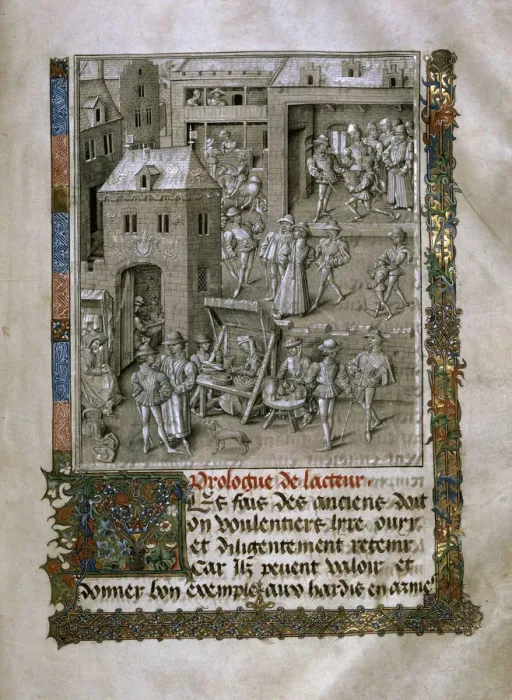 Prologue de lacteur
Les fais des anciens doit
on voulentiers lyre ouyr
et diligentement retenir
Car Ilz peuent valoir et
donner bon exemple aux hardis en arme